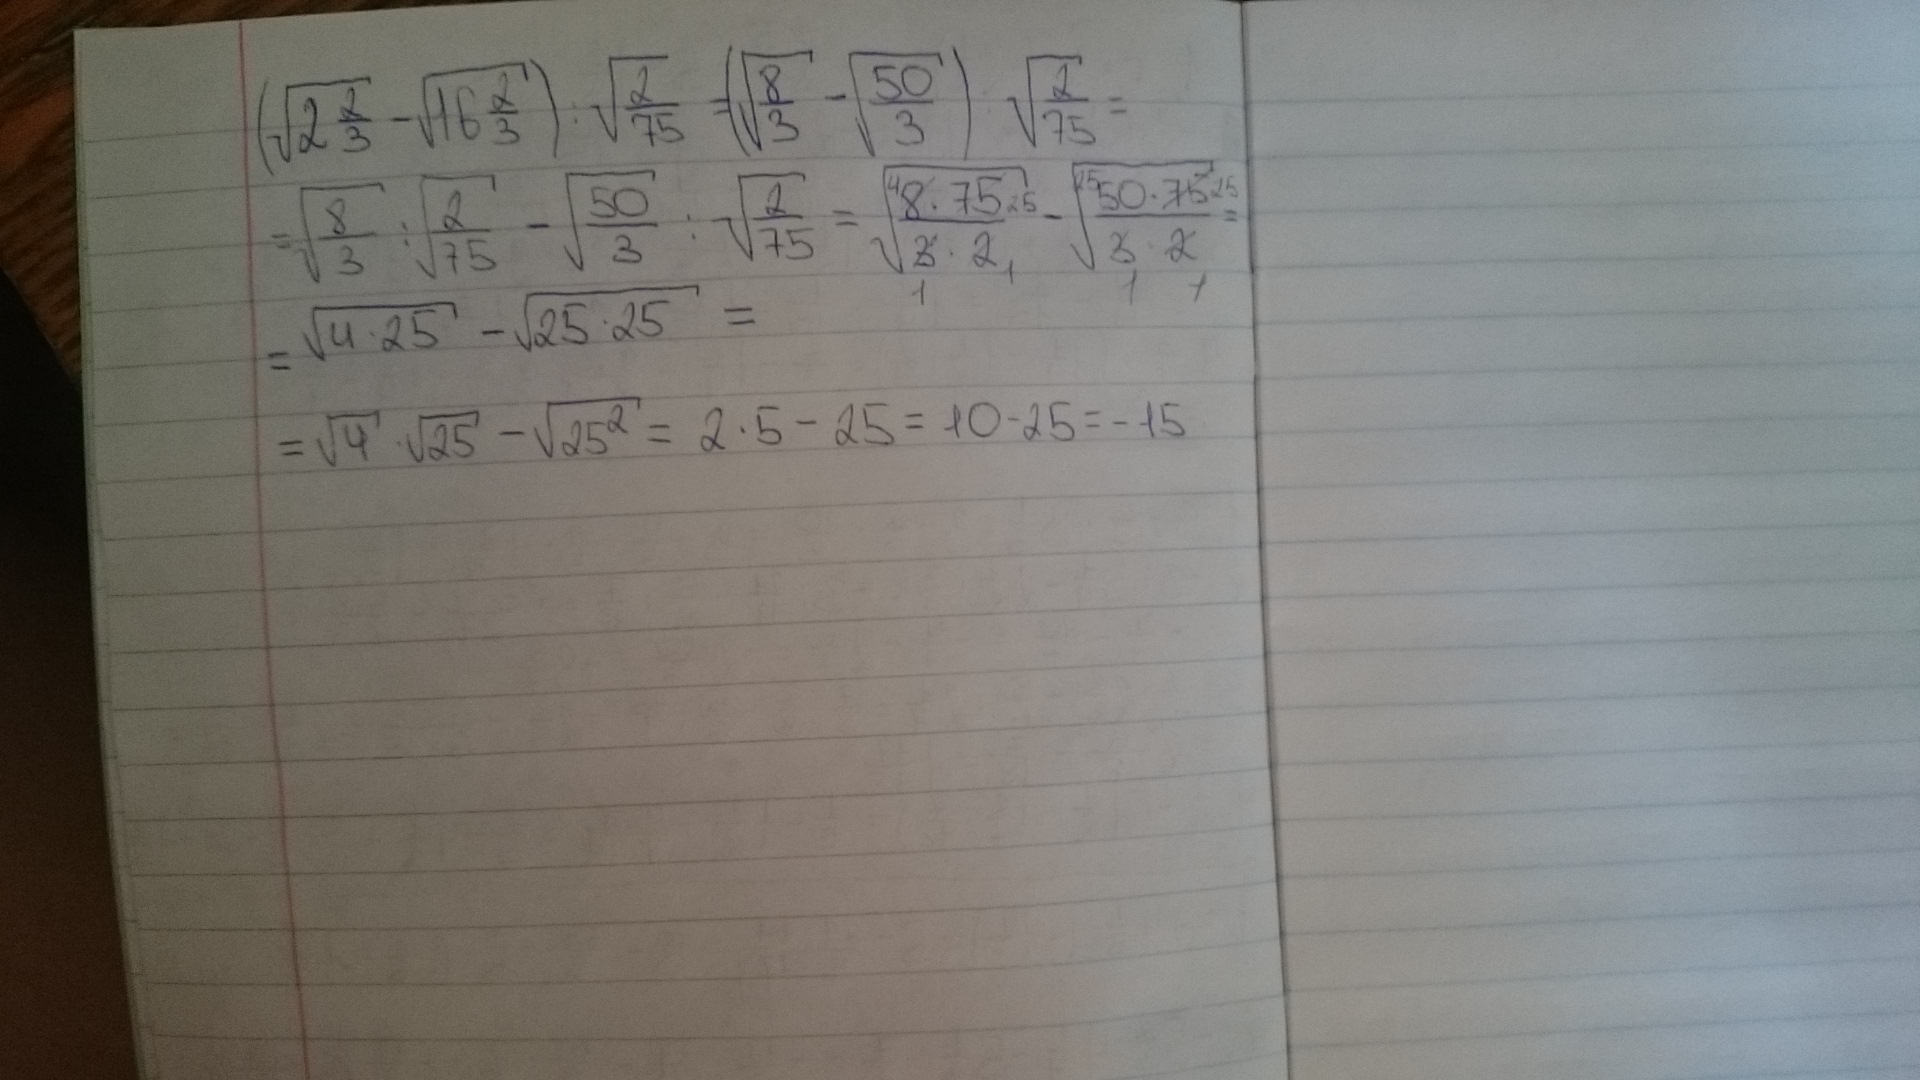 (√2 2/3 - √16 2/3) : √2/75 = (√8/3 - √50/3) : √2/75 =
= √8/3 : √2/75 - √50/3 : √2/75 = √(⁴8·75²⁵/3·2) - √(²⁵50·75²⁵/3·2) =
1 1 1 1
= √4·25 - √25·25 =
= √4 · √25 - √25² = 2·5 - 25 = 10-25 = -15